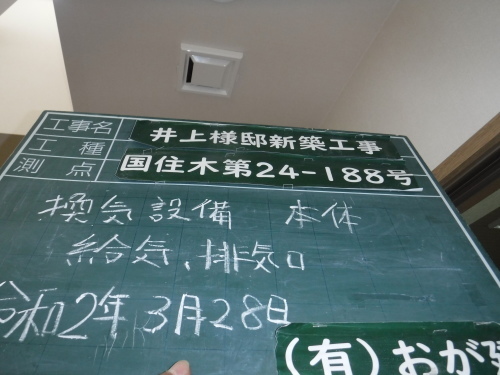 工事名 井上様邸新築工事
工種
測点 国住木第24-188号
換気設備 本体
給気、排気口
令和2年3月28日
(有)おが